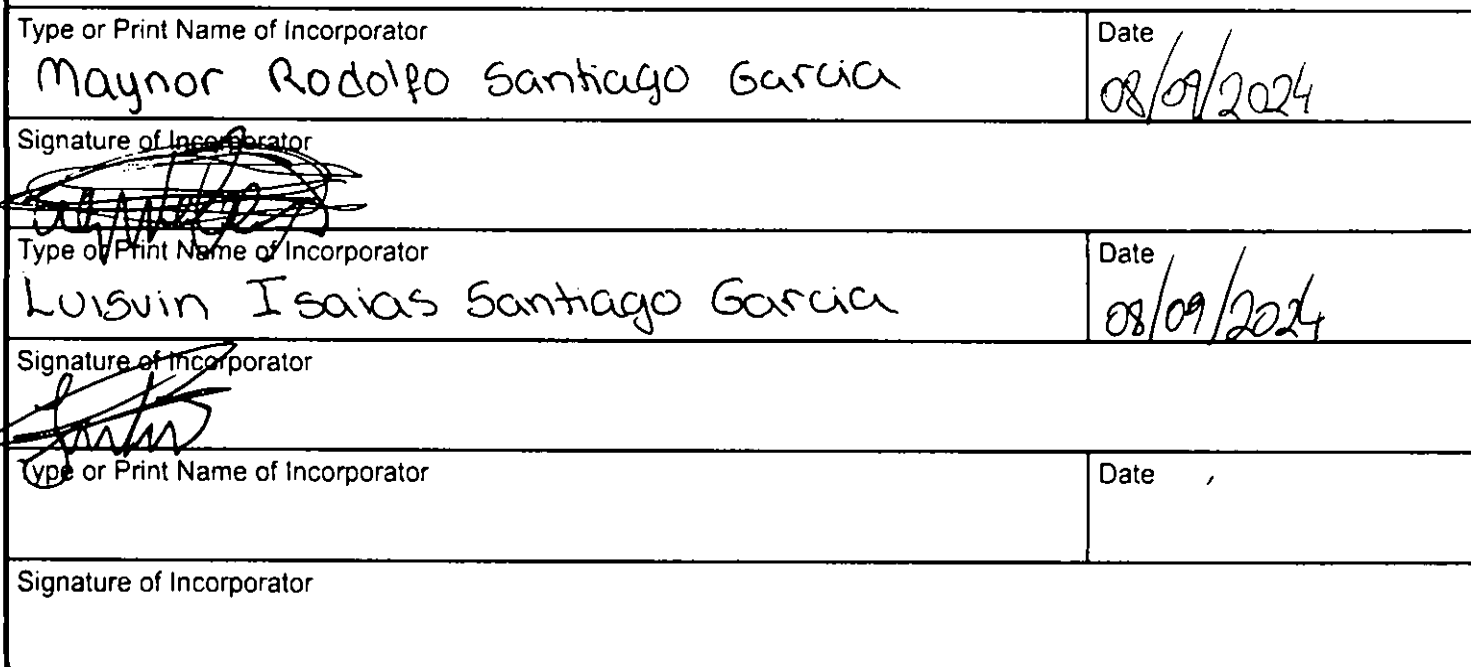 Type or Print Name of Incorporator Date
Maynor Rodolfo Santiago Garcia 08/09/2024
Signature of Incorporator
Type or Print Name of Incorporator Date
Luisvin Isaias Santiago Garcia 08/09/2024
Signature of Incorporator
Type or Print Name of Incorporator Date
Signature of Incorporator